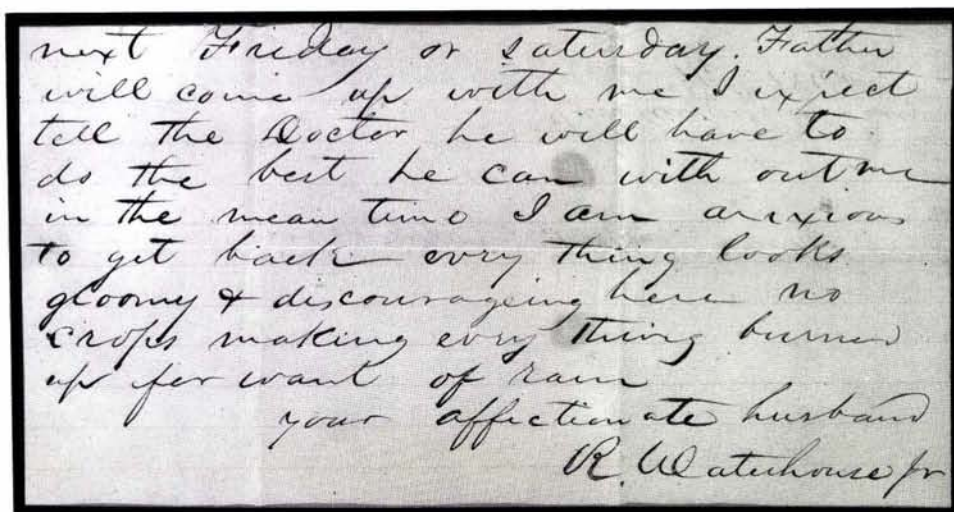 next Friday or saturday. Father
will come up with me I expect
tell the Doctor he will have to
do the best he can with out me
in the mean time I am anxious
to get back evry thing looks
gloomy & discourageing here no
crops making evry thing burned
up for want of rain
your affectionate husband
R. Waterhouse jr